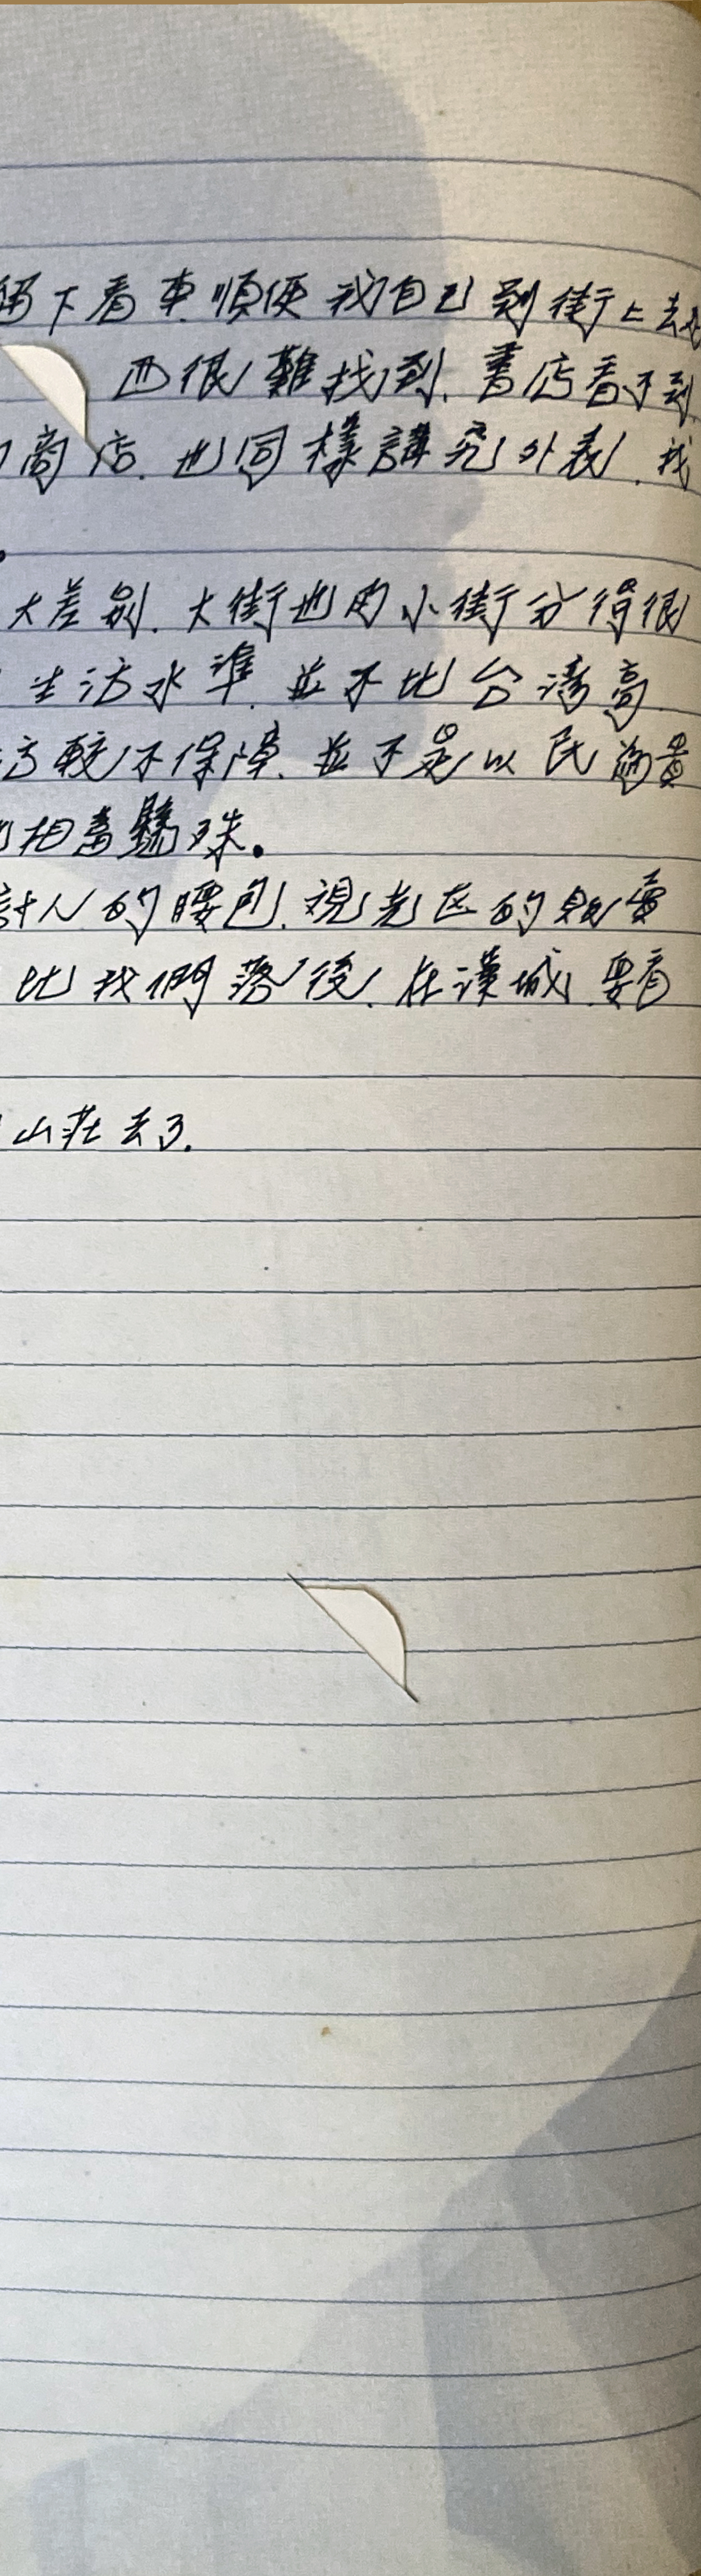 留下看車順便我自己到街上去
西很難找到.書店看不到
商店.也同樣講究外表.找
大差别.大街也的小街分得很
生活水準.並不比台湾高.
方較不保障.並不是以民為貴
相當懸殊。
計人的腰包.观光区的販賣
比我們落後.在漢城.要看
山莊去了.